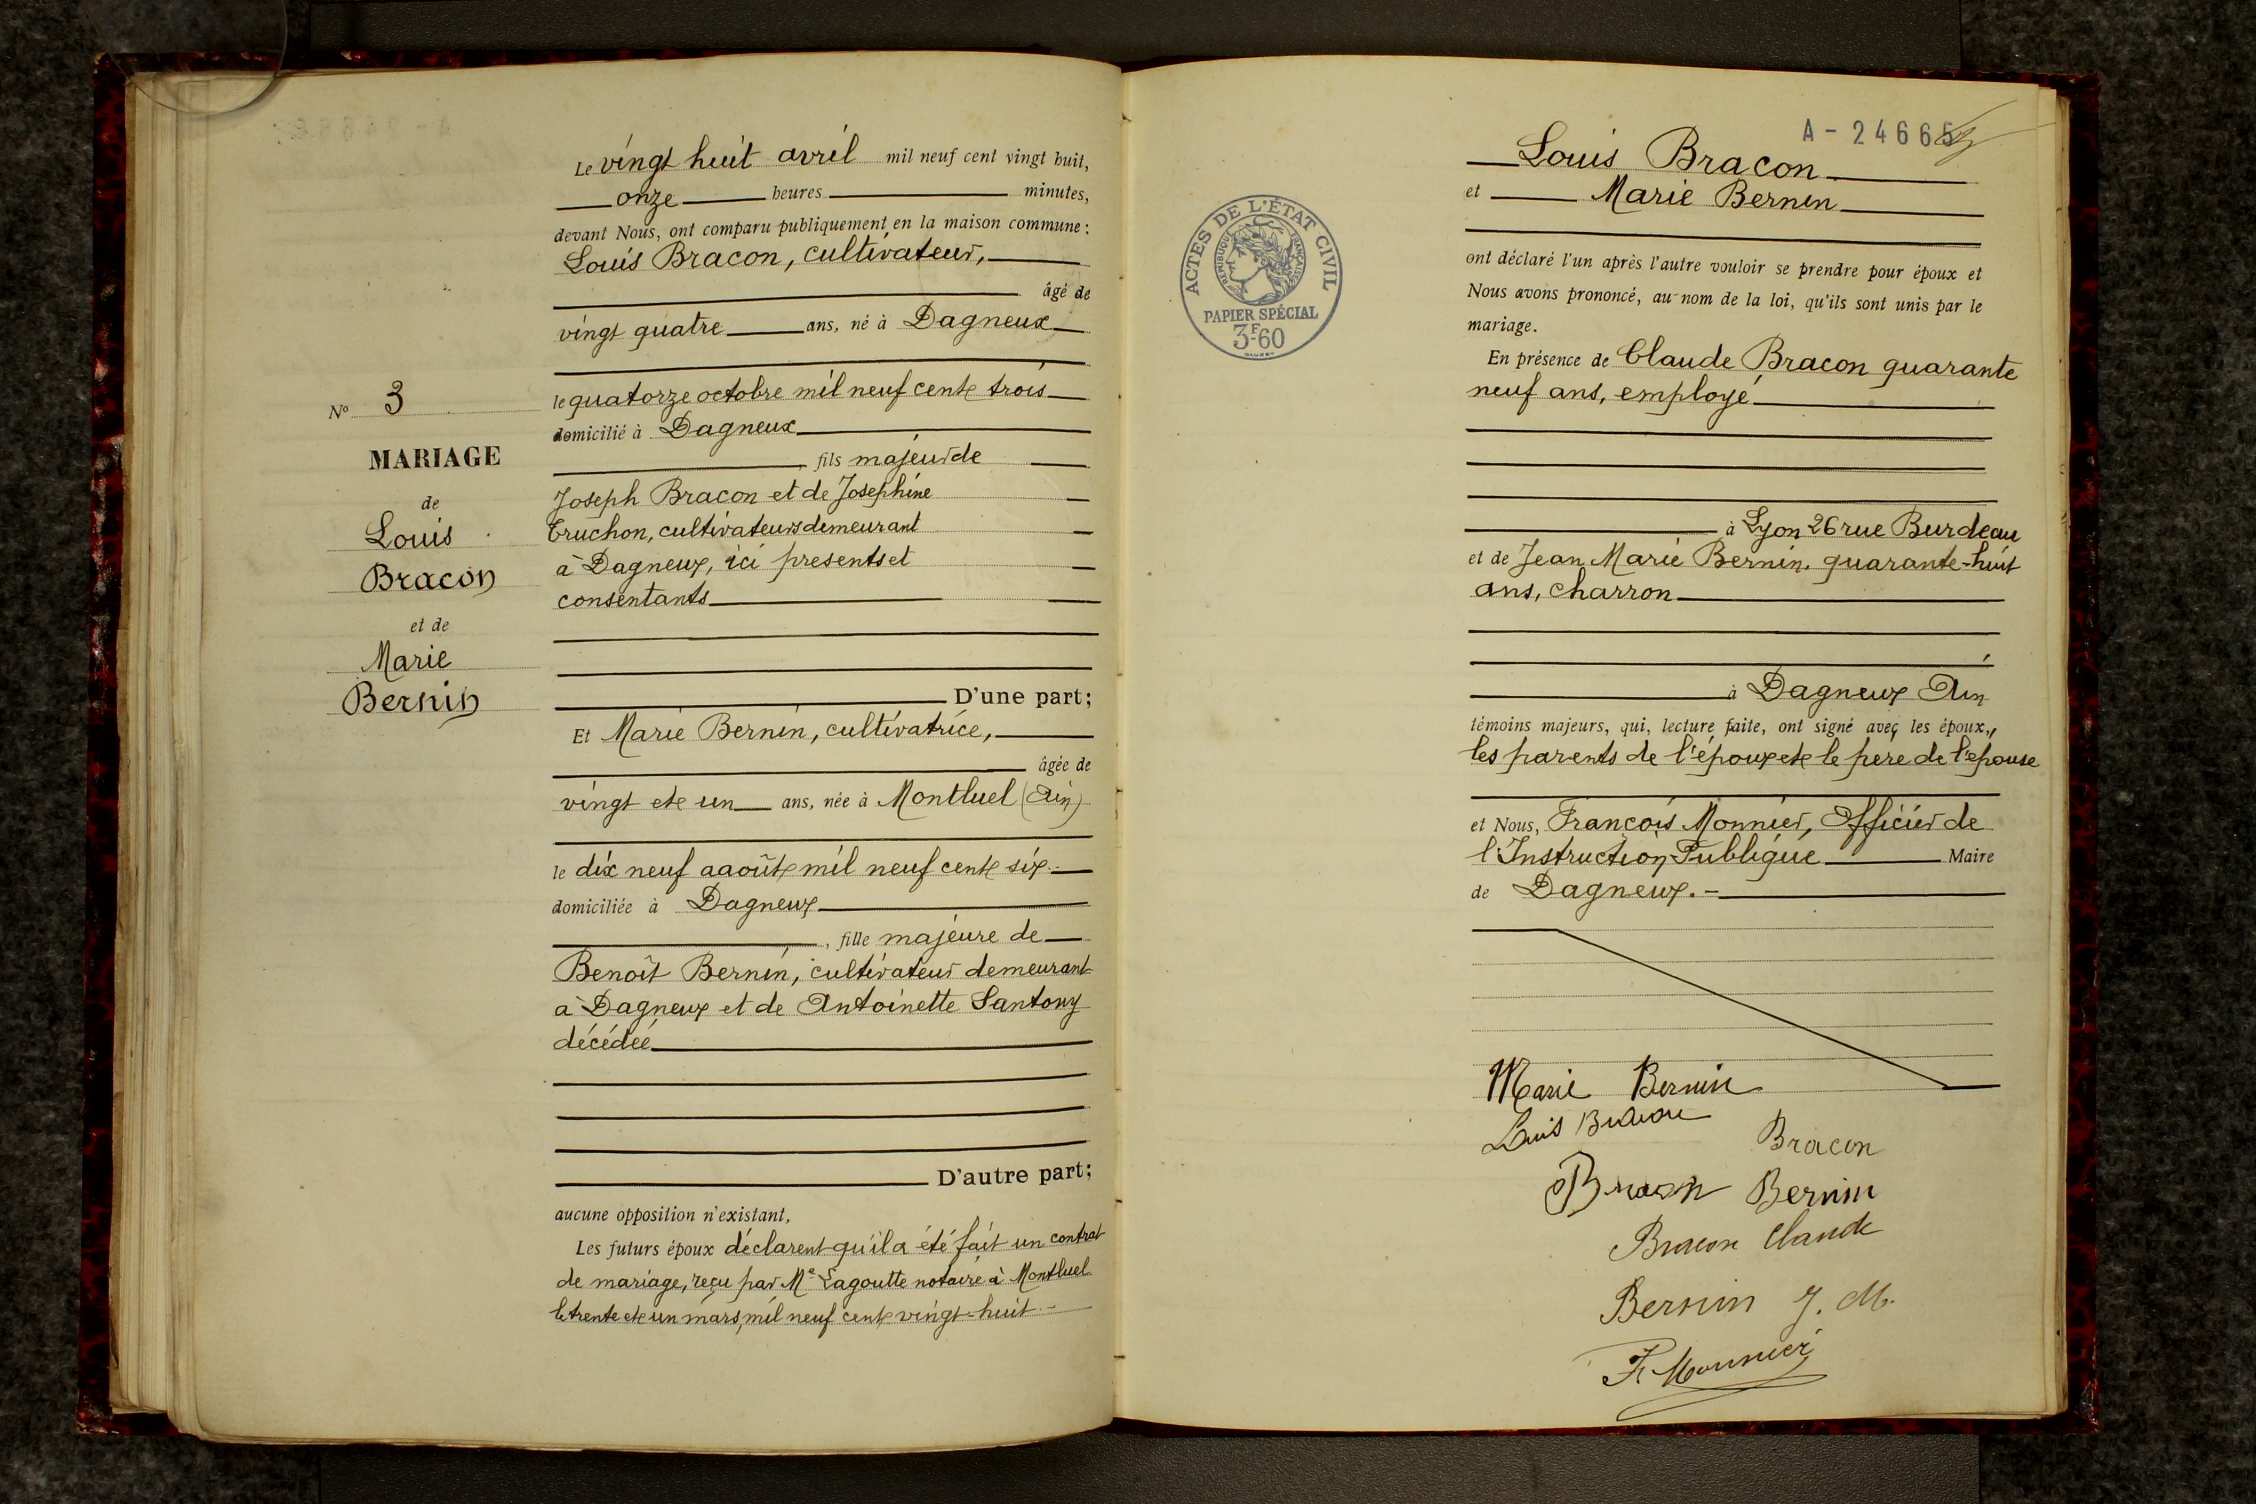 Le vingt huit avril mil neuf cent vingt huit,
onze heures minutes,
devant Nous, ont comparu publiquement en la maison commune :
Louis Bracon, cultivateur,
âgé de
vingt quatre ans, né à Dagneux
le quatorze octobre mil neuf cent trois
domicilié à Dagneux
, fils majeur de
Joseph Bracon et de Josephine
Truchon, cultivateurs demeurant
à Dagneux, ici presents et
consentants
D'une part;
Et Marie Bernin, cultivatrice,
âgée de
vingt et un ans, née à Montluel (Ain)
le dix neuf aaoût mil neuf cent six.-
domiciliée à Dagneux
, fille majeure de
Benoît Bernin, cultivateur demeurant
à Dagneux et de Antoinette Santony
décédée
D'autre part;
aucune opposition n'existant,
Les futurs époux déclarent qu'il a été fait un contrat
de mariage, reçu par Me Lagoutte notaire à Montluel
le trente et un mars, mil neuf cent vingt-huit-
No 3
MARIAGE
de
Louis
Bracon
et de
Marie
Bernin
A-24665
Louis Bracon
et Marie Bernin
ont déclaré l'un après l'autre vouloir se prendre pour époux et
Nous avons prononcé, au nom de la loi, qu'ils sont unis par le
mariage.
En présence de Claude Bracon quarante
neuf ans, employé
à Lyon 26 rue Burdeau
et de Jean Marie Bernin. quarante-huit
ans, charron
à Dagneux Ain
témoins majeurs, qui, lecture faite, ont signé avec les époux,
les parents de l'époux et le pere de l'epouse
et Nous, François Monnier, Officier de
l'Instruction Publique Maire
de Dagneux.-
Marie Bernin
Louis Bracon
Bracon
Bracon Bernin
Bracon Claude
Bernin J. M.
F. Monnier
ACTES DE L'ÉTAT CIVIL
RÉPUBLIQUE FRANÇAISE
PAPIER SPÉCIAL
3F-60